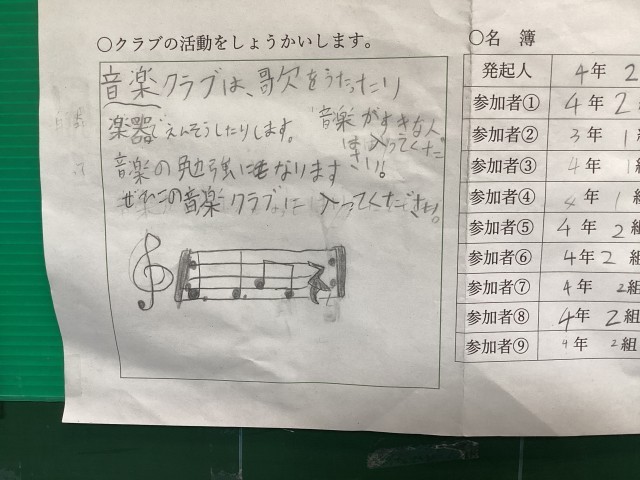 ○クラブの活動をしょうかいします。
音楽クラブは、歌をうたったり
楽器えんそうしたりします。
音楽がすきな人
は入ってくだ
さい!
音楽の勉強にもなります
ぜひこの音楽クラブに入ってください。
○名 簿
発起人 4年 2
参加者① 4年 2
参加者② 3年 1組
参加者③ 4年 1組
参加者④ 4年 1組
参加者⑤ 4年 2組
参加者⑥ 4年 2組
参加者⑦ 4年 2組
参加者⑧ 4年 2組
参加者⑨ 4年 2組